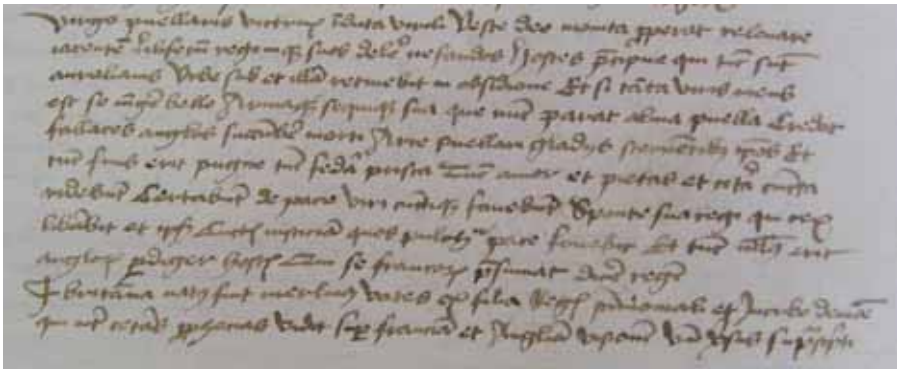 Virgo puellares artus induta virili Veste dei monita properat relevare
iacentem liliferum regemque suos delere nefandos Hostes precipue qui tunc sunt
aurelianis Urbe sub et illam retinebit in obsidione Et si tanta viris mens
est se iungere bello Armaque sequique sua que nunc parat alma puella Credit
fallaces anglos succumbere morti Arte puellari gladiis sternentibus ipsos Et
tunc finis erit pugne tunc federa prisca Tunc amor et pietas et cetera cuncta
ridebunt Certabunt de pace viri cunctique favebunt Sponte sua regi qui rex
librabit et ipsis Cunctis iusticiam quos pulchra pace fovebit Et tunc nullus erit
anglorum pardiger hostis Qui se francorum presumat dicere regem
britannia natus fuit merlinus vates ex filia Regis
qui inter ceteras prophecias vidit super franciam et Angliam